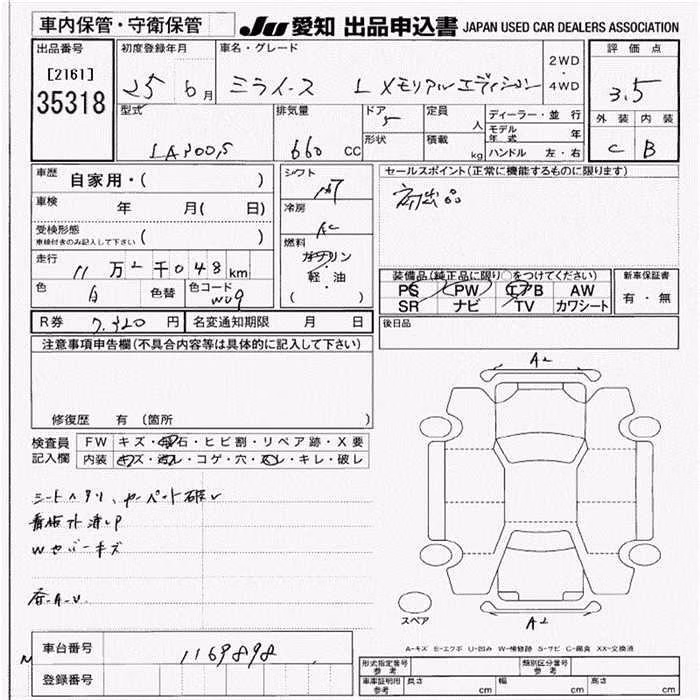 車内保管・守衛保管
JU 愛知 出品申込書 JAPAN USED CAR DEALERS ASSOCIATION
出品番号 初度登録年月 車名・グレード 2WD・4WD 評価点
[2161] 25 6月 ミライース L メモリアルエディション 3.5
35318
型式 排気量 ドア 5 定員 人 ディーラー・並行 外装 内装
モデル年式 年
LA300S 660 CC 形状 積載 kg ハンドル 左・右 C B
車歴 自家用・( ) シフト AT セールスポイント(正常に機能するものに限ります)
初出品
車検 年 月( 日) 冷房 AC
受検形態 ( )
車検付きのみ記入して下さい
燃料 ガソリン・軽・油 ( )
走行 11万2千048km
装備品(純正品に限り○をつけてください) 新車保証書
PS PW エアB AW 有・無
SR ナビ TV カワシート
色 白 色替 色コード W09
R券 7,320円 名変通知期限 月 日 後日品
注意事項申告欄(不具合内容等は具体的に記入して下さい)
修復歴 有 (箇所
A2
検査員 FW キズ・飛石・ヒビ割・リペア跡・X要
記入欄 内装 キズ・汚レ・コゲ・穴・スレ・キレ・破レ
シートヘタリ、カーペット破レ
Wセバーキズ
スペア
A2
A-キズ E-エクボ U-凹み W-補修跡 S-サビ C-腐食 XX-交換済
車台番号 1169898
登録番号
形式指定番号 参考 類別区分番号 参考
車庫証明用 参考 長さ cm 幅 cm 高さ cm